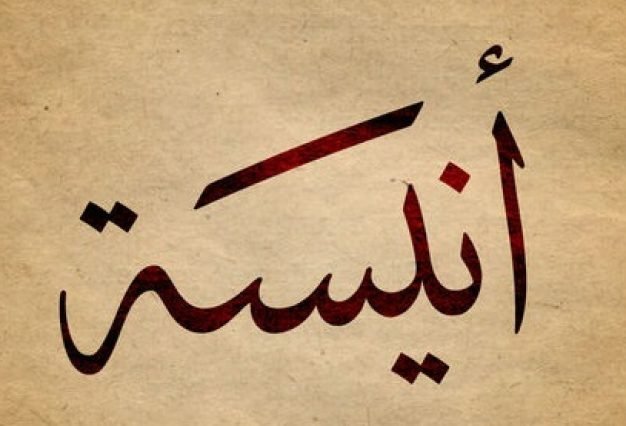 أنيسة